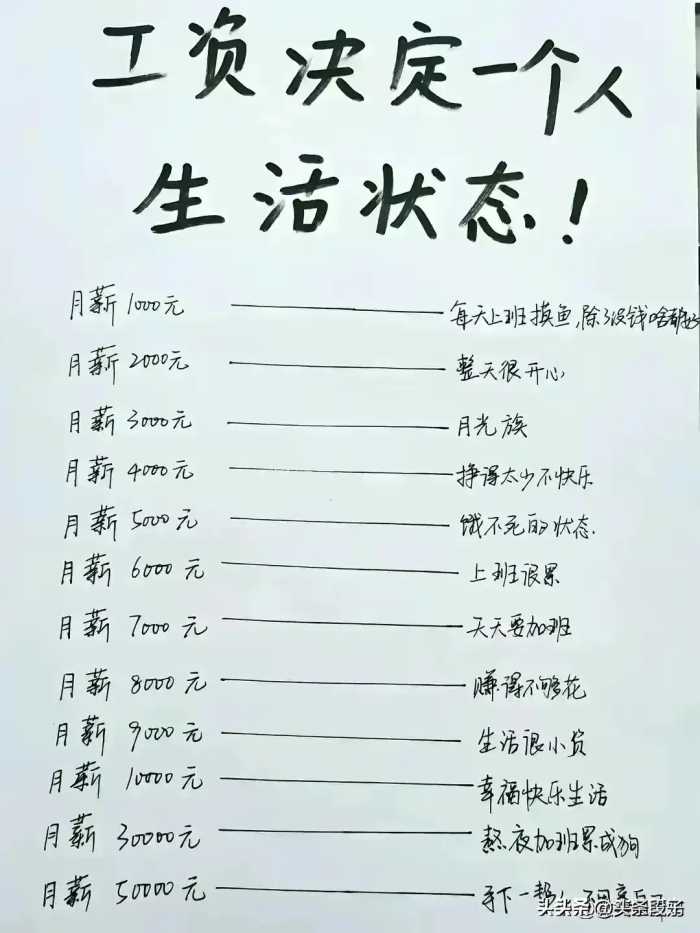 工资决定一个人
生活状态!
月薪1000元 每天上班摸鱼,除了没钱啥都
月薪2000元 整天很开心
月薪3000元 月光族
月薪4000元 挣得太少不快乐
月薪5000元 饿不死的状态.
月薪6000元 上班很累
月薪7000元 天天要加班
月薪8000元 赚得不够花
月薪9000元 生活很小资
月薪10000元 幸福快乐生活
月薪30000元 熬夜加班累成狗
月薪50000元 手下一帮